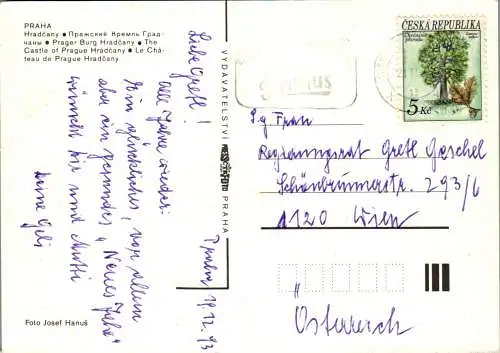 PRAHA
Hradčany ● Пражский Кремль Град-
чаны ● Prager Burg Hradčany ● The
Castle of Prague Hradčany ● Le Châ-
teau de Prague Hradčany
Liebe Gretl!
Alle Jahre wieder:
Ein glückliches, vor allem
aber ein gesundes „Neues Jahr"
wünscht Dir und Mutti
Deine Geli
Prag, 19.12.93
Foto Josef Hanuš
VYDAVATELSTVÍ PRESSFOTO PRAHA
ČESKÁ REPUBLIKA
5 Kč
S.g. Frau
Regierungsrat Gretl Geschel
Schönbrunnerstr. 293/6
1120 Wien
Österreich